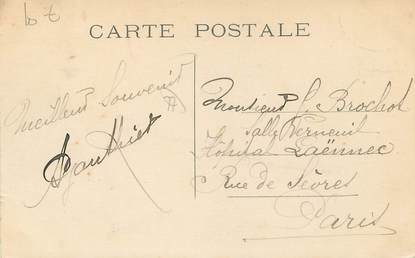 CARTE POSTALE
Meilleurs Souvenirs
Gauthier
Monsieur C. Brochot
Salle Verneuil
Hôpital Laënnec
Rue de Sèvres
Paris